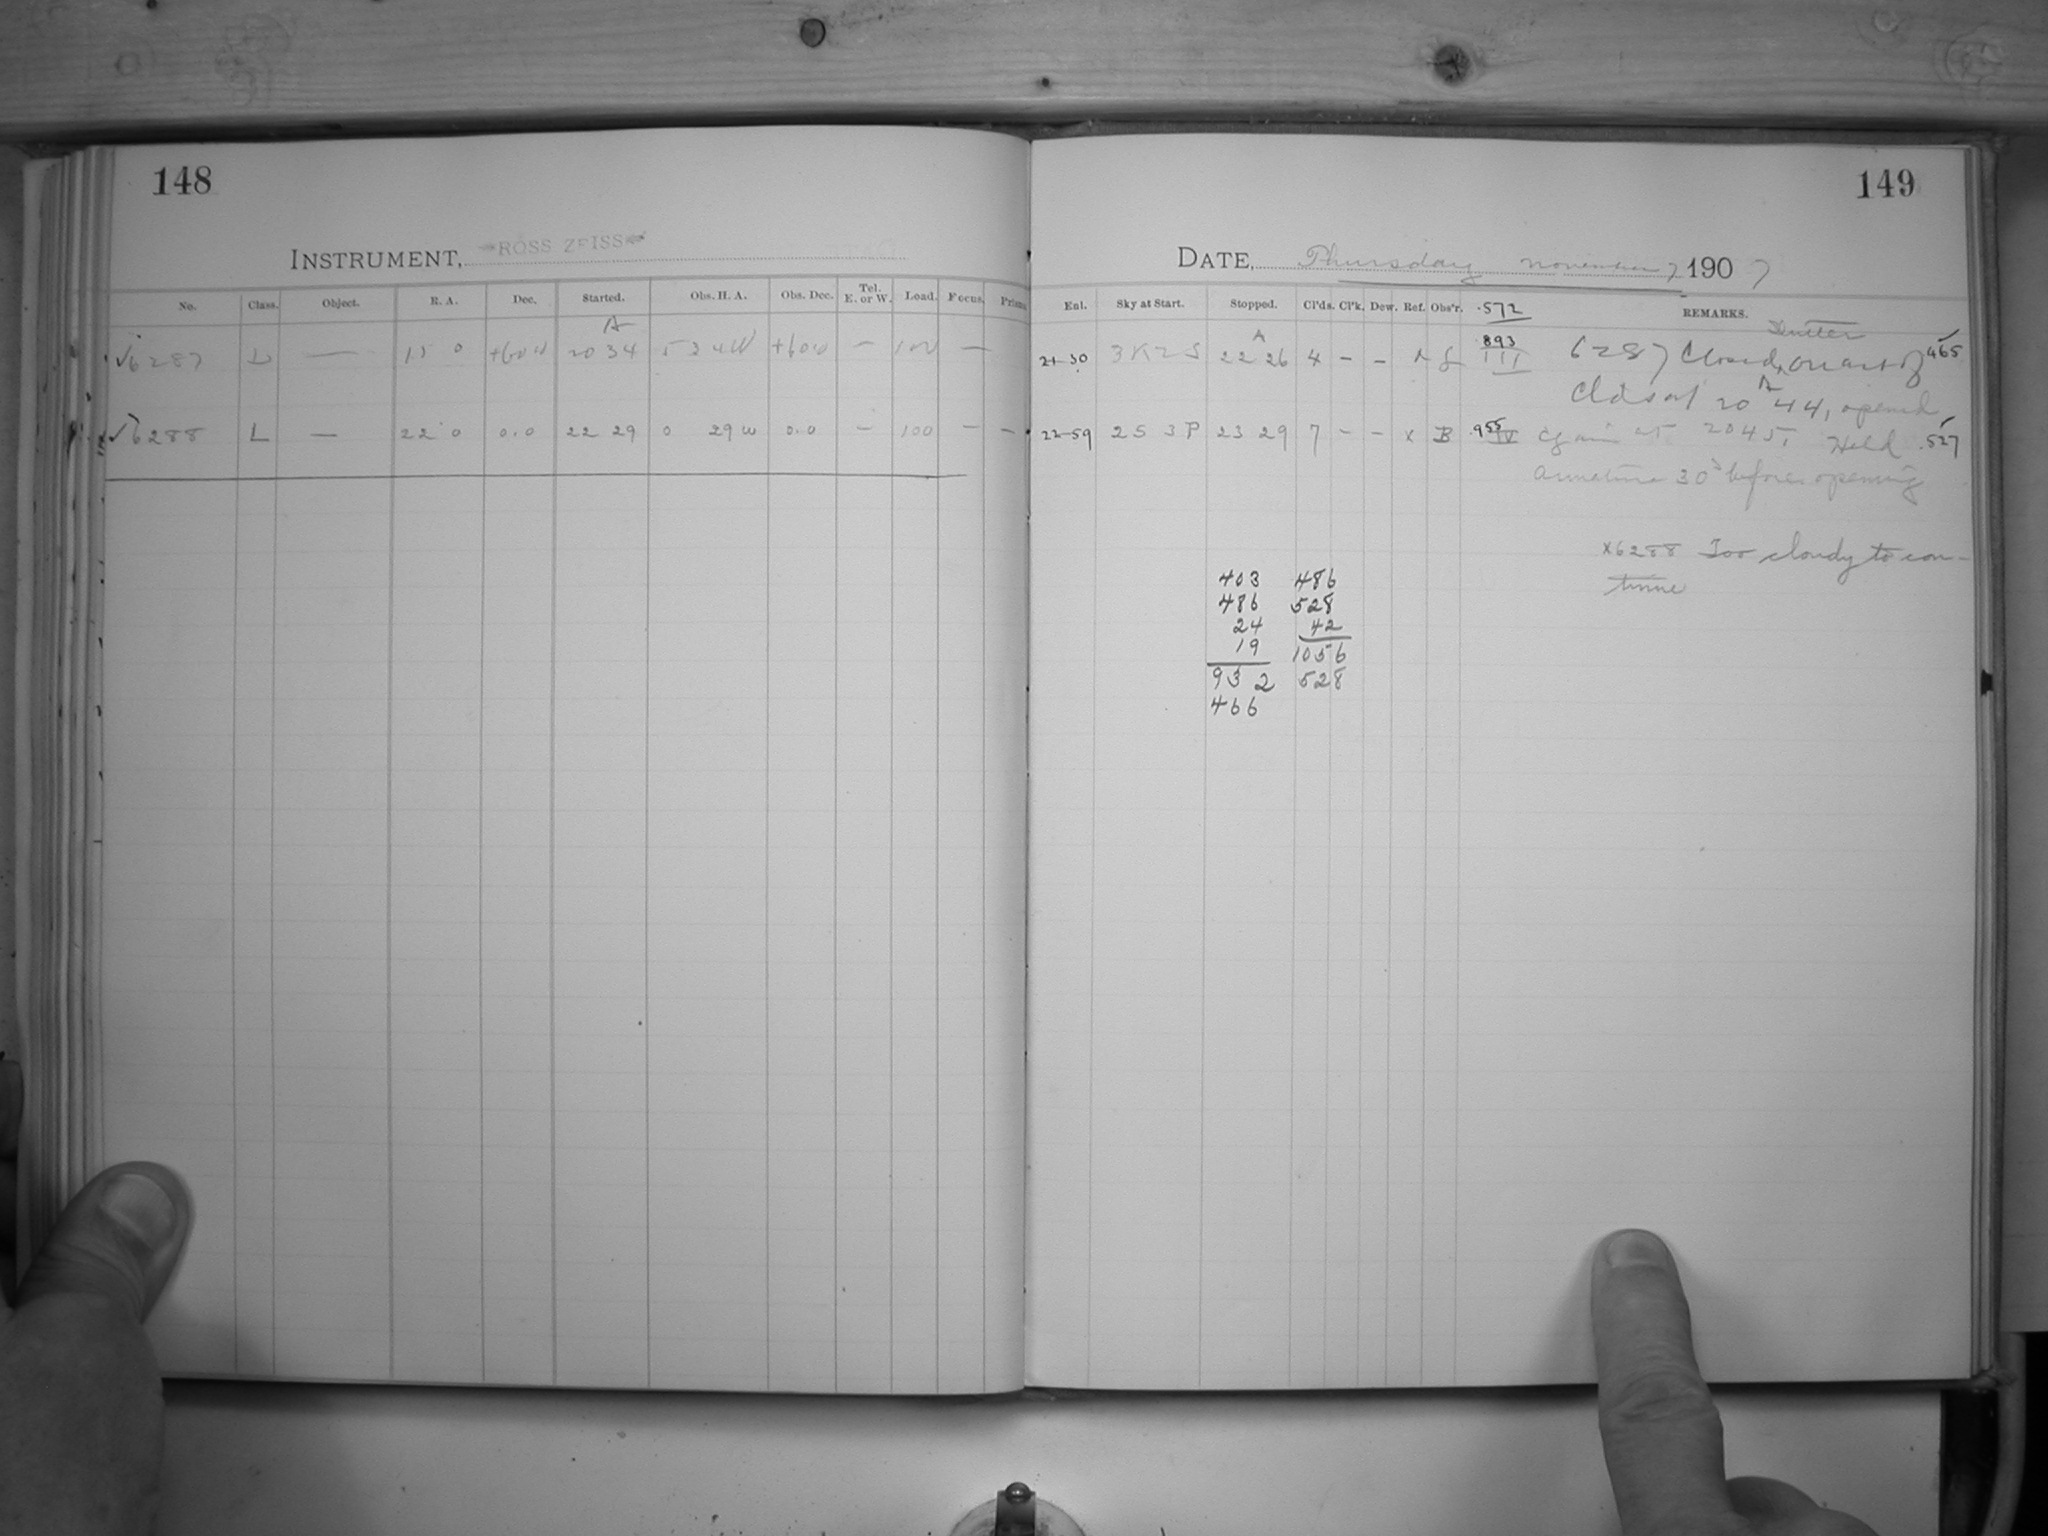 148
149
INSTRUMENT, ROSS ZEISS
DATE, Thursday November 7 1907
No. Class. Object. R. A. Dec. Started. Obs. H. A. Obs. Dec. Tel. E. or W. Load. Focus. Prism
Enl. Sky at Start. Stopped. Cl'ds. Cl'k. Dew. Ref. Obs'r. .572 REMARKS.
√6287 L — 15 0 +60 0 20 34 5 34 W +60 0 — 100 —
21-30 22 26 4 - - .893 III 6287 Closed shutter on acct of .465
Clds at 20 44, opened
√6288 L — 22 0 0.0 22 29 0 29 W 0.0 — 100 — —
22-59 2S 3P 23 29 7 - - x B .955 IV again at 20 45, Held .527
armature 30s before opening
x6288 Too cloudy to con-
tinue
403 486
486 528
24 42
19 1056
932 528
466